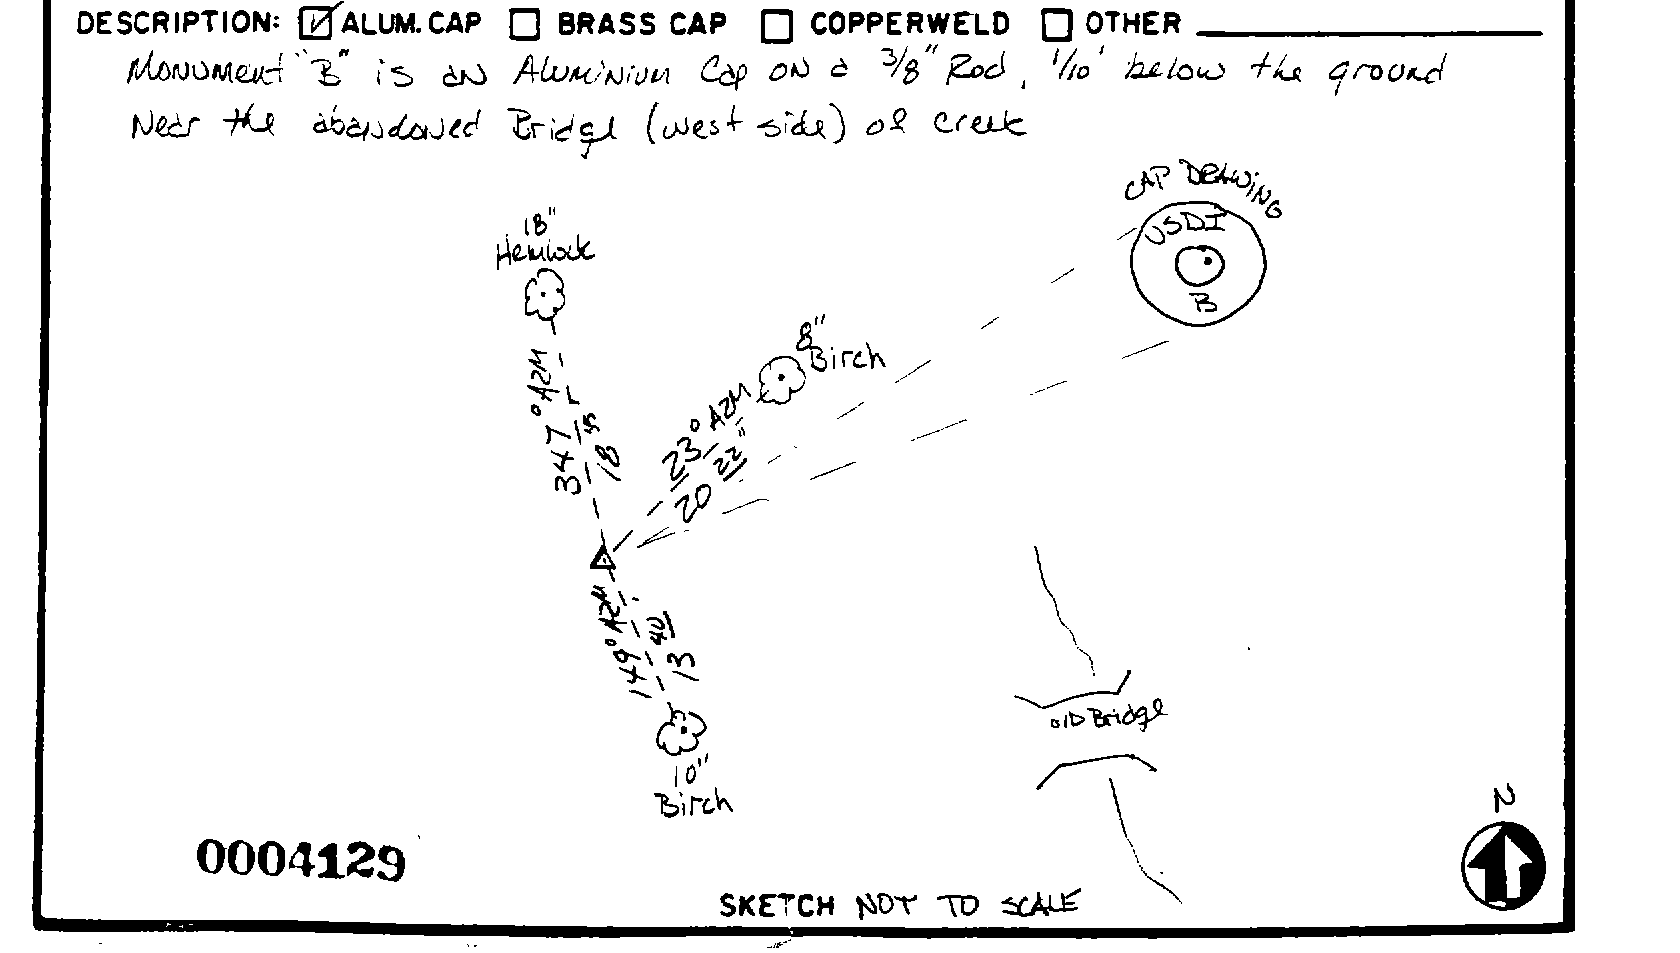 DESCRIPTION: ALUM. CAP BRASS CAP COPPERWELD OTHER
Monument "B" is an Aluminium Cap on a 3/8" Rod, 1/10' below the ground
Near the abandoned Bridge (west side) of creek
CAP DRAWING
USDI
B
18"
Hemlock
8"
Birch
347° AZM
18
23° AZM
20 22"
149° AZM
13 40
10"
Birch
old Bridge
N
0004129
SKETCH NOT TO SCALE